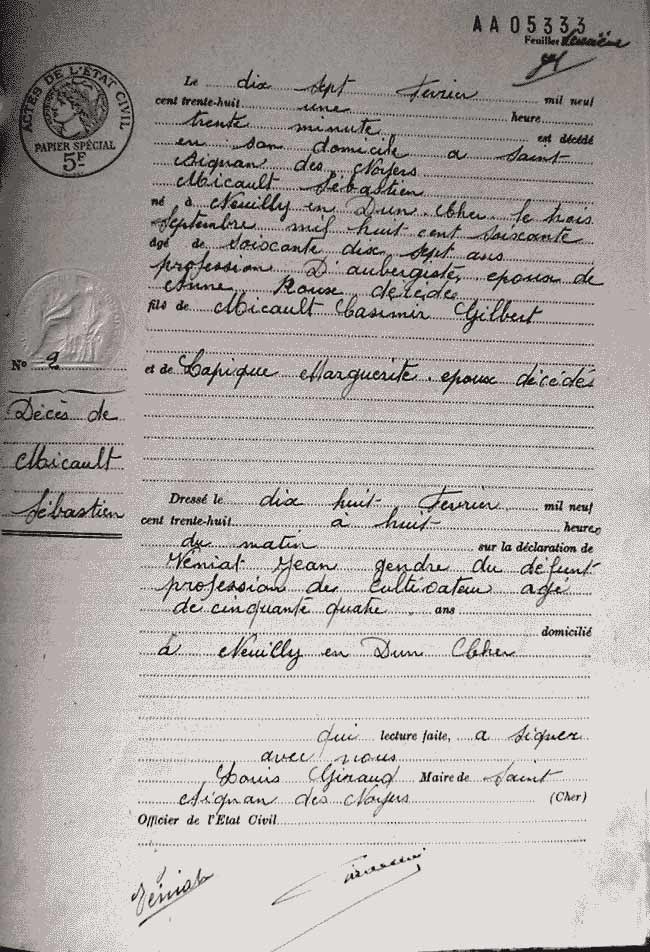 AA05333
Feuillet deuxième
ACTES DE L'ÉTAT CIVIL
PAPIER SPÉCIAL
5F
Le dix sept Fevrier mil neuf
cent trente-huit une heure
trente minute est décédé
en son domicile a Saint
Aignan des Noyers
Micault Sébastien
né à Neuilly en Dun Cher le trois
Septembre mil huit cent soixante
âgé de soixante dix sept ans
profession D'aubergiste, epoux de
Anne Roux decédée
fils de Micault Casimir Gilbert
No 2
et de Lapique Marguerite epoux décédés
Décès de
Micault
Sébastien
Dressé le dix huit Fevrier mil neuf
cent trente-huit à huit heures
du matin sur la déclaration de
Véniat Jean gendre du défunt
profession de cultivateur agé
de cinquante quatre ans
domicilié
à Neuilly en Dun Cher
qui lecture faite, a signer
avec nous
Louis Giraud Maire de Saint
Aignan des Noyers (Cher)
Officier de l'Etat Civil
Véniat